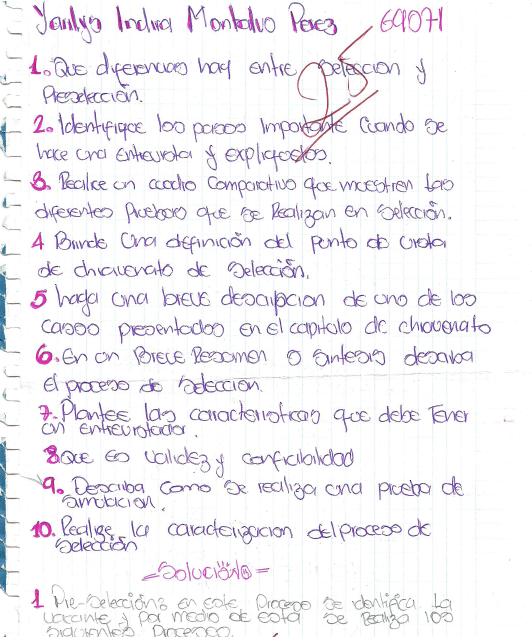 Yarilys Indira Montalvo Perez 69071
95
1. Que diferencias hay entre Selección y
Preselección.
2. Identifique los pasos importante cuando se
hace una entrevista y expliquelos.
3. Realice un cuadro comparativo que muestren las
diferentes Pruebas que se Realizan en Selección.
4 Brinde una definición del punto de vista
de chiavenato de Selección.
5 haga una breve descripcion de uno de los
casos presentados en el capitulo de chiavenato
6. En un Breve Resumen o sintesis describa
El proceso de Selección.
7. Plantee las caracteristicas que debe Tener
un entrevistador.
8 Que es validez y confiabilidad
9. Describa como se realiza una prueba de
simulacion.
10. Realize la caracterizacion del proceso de
Selección
=Solución=
1 Pre-Selección: en este Proceso se identifica la
vacante y por medio de esta se Realiza los
siguientes Procesos.